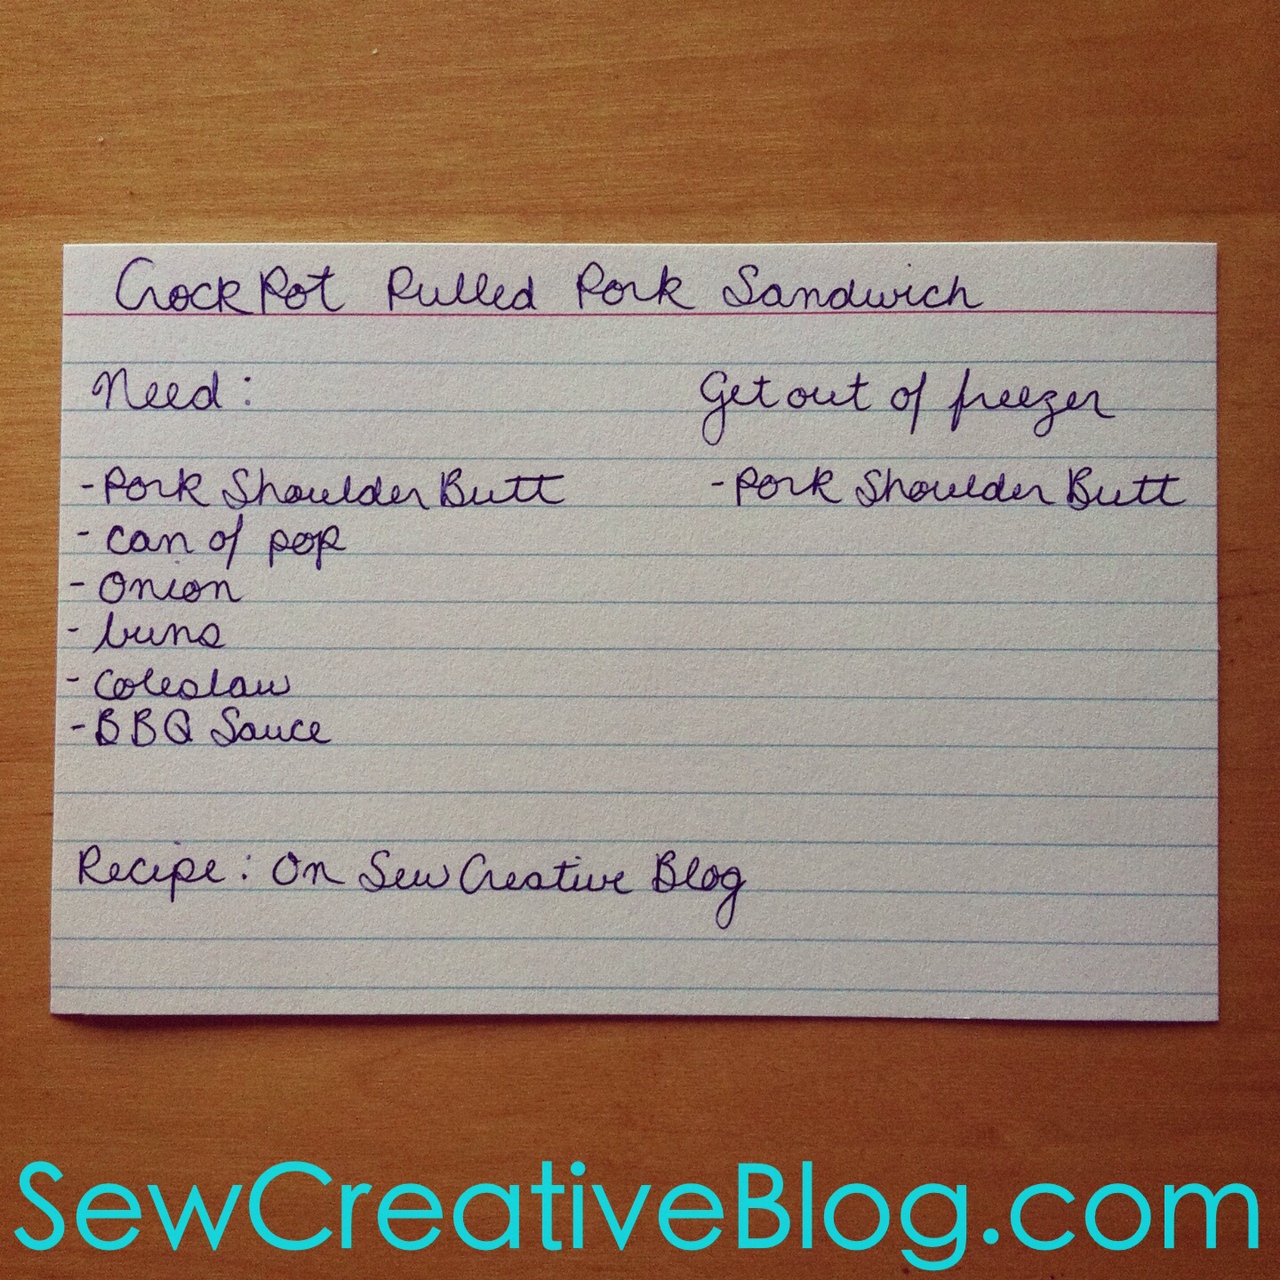 CrockPot Pulled Pork Sandwich
Need:
- Pork Shoulder Butt
- can of pop
- Onion
- buns
- Coleslaw
- BBQ Sauce
Get out of freezer
- Pork Shoulder Butt
Recipe: On Sew Creative Blog
SewCreativeBlog.com